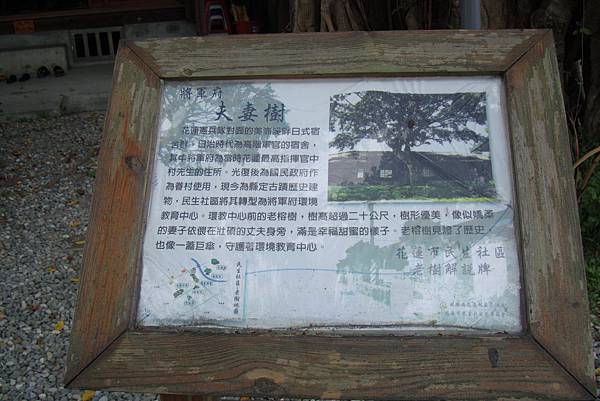 將軍府
夫妻樹
花蓮憲兵隊對面的美崙溪畔日式宿
舍群，日治時代為高階軍官的宿舍，
其中將軍府為當時花蓮最高指揮官中
村先生的住所。光復後為國民政府作
為眷村使用，現今為縣定古蹟歷史建
物，民生社區將其轉型為將軍府環境
教育中心。環教中心前的老榕樹，樹高超過二十公尺，樹形優美，像似嬌柔
的妻子依偎在壯碩的丈夫身旁，滿是幸福甜蜜的樣子。老榕樹見證了歷史，
也像一蓋巨傘，守護著環境教育中心。
花蓮市民生社區
老樹解說牌
民生社區老樹地圖